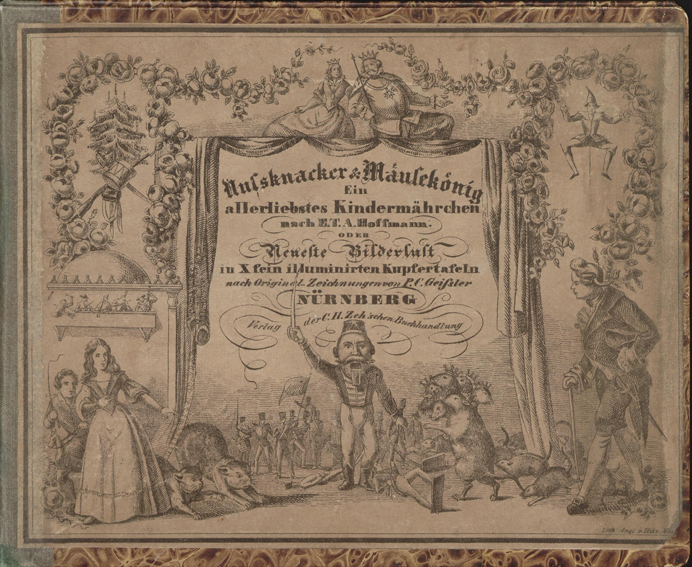 Nussknacker & Mäusekönig
Ein
allerliebstes Kindermährchen
nach E.T.A. Hoffmann.
ODER
Neueste Bilderlust
in X fein illuminirten Kupfertafeln
nach Original-Zeichnungen von P.C. Geißler
NÜRNBERG
Verlag der C.H. Zeh'schen Buchhandlung